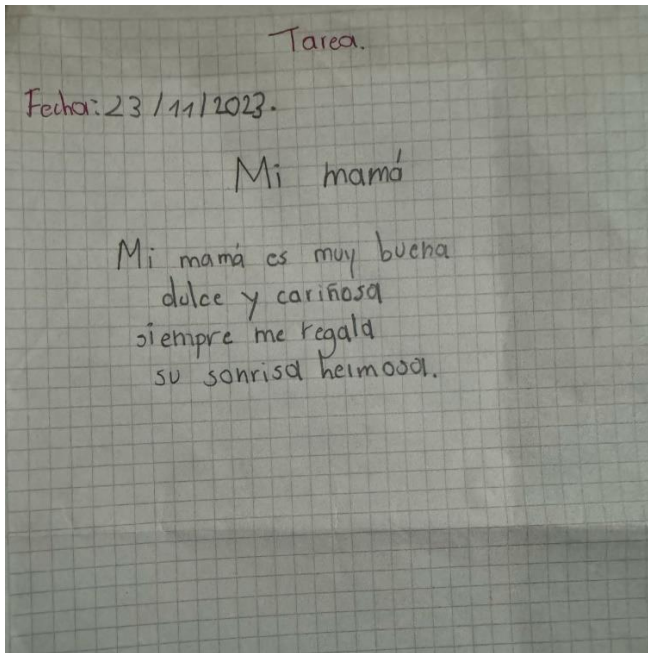 Tarea.
Fecha: 23/11/2023.
Mi mamá
Mi mamá es muy buena
dulce y cariñosa
siempre me regala
su sonrisa hermosa.